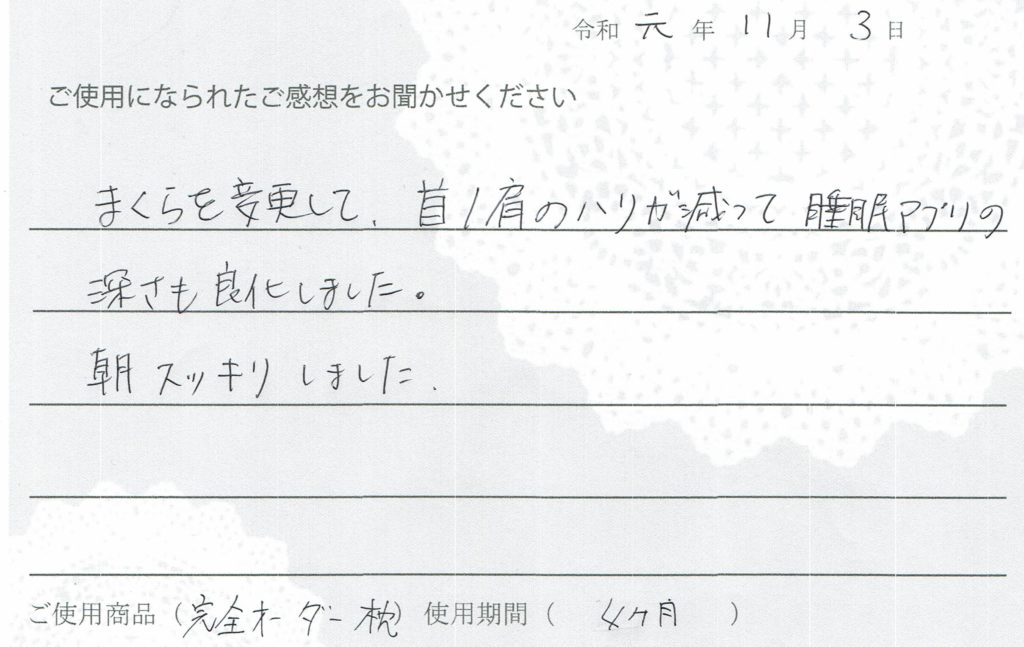 令和 元 年 11 月 3 日
ご使用になられたご感想をお聞かせください
まくらを変更して、首/肩のハリが減って 睡眠アプリの
深さも良化しました。
朝スッキリしました.
ご使用商品(完全オーダー枕) 使用期間( 4ヶ月 )